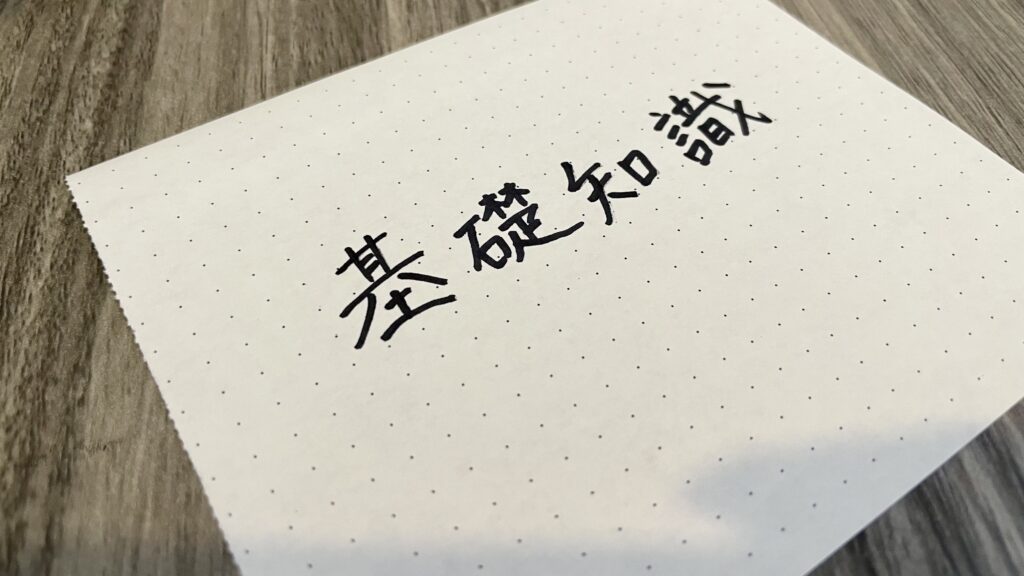 基礎知識